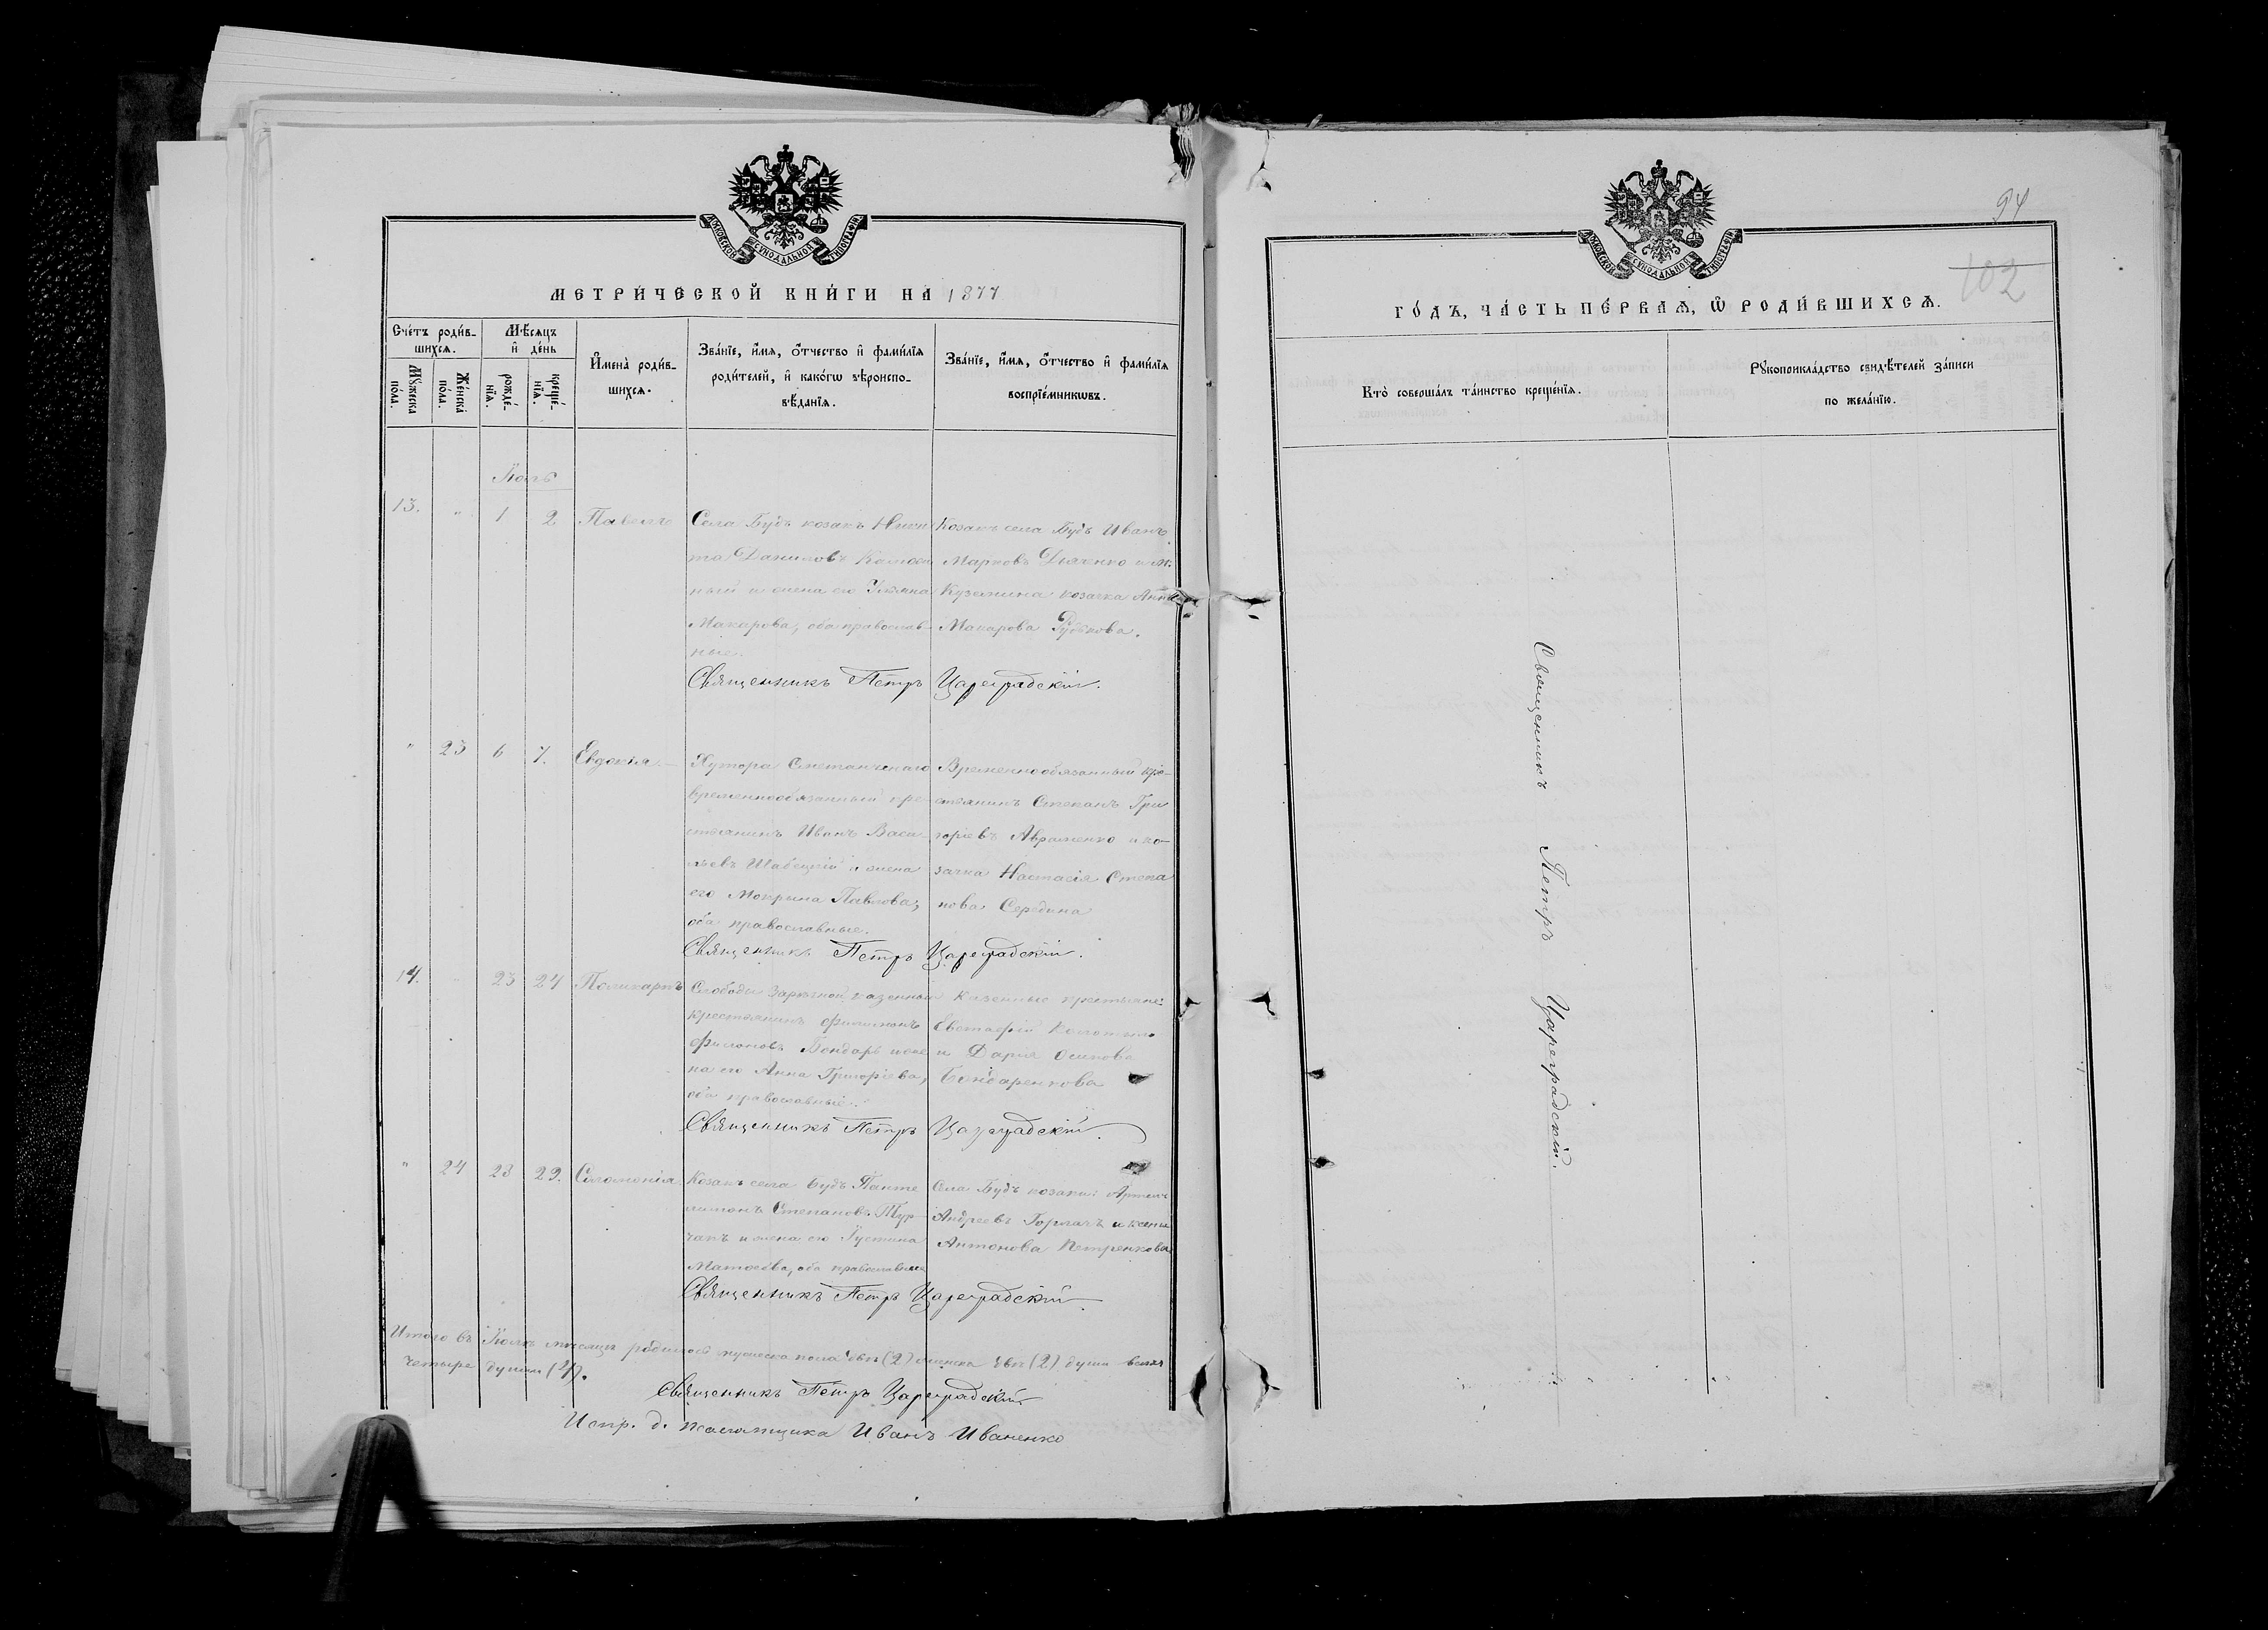 МОСКОВСКОЙ СѴНОДАЛЬНОЙ ТИПОГРАФІИ
МЕТРИ́ЧЕСКОЙ КНИ́ГИ НА 1877
Сче́тъ роди́в-
шихсѧ.
Мѣ́сѧцъ
и҆ де́нь
Мꙋ́жеска
по́ла.
Же́нска
по́ла.
рожде́-
нїѧ.
креще́-
нїѧ.
И҆мена̀ роди́в-
шихсѧ.
Зва́нїе, и҆́мѧ, ѻ҆́тчество и҆ фами́лїѧ
роди́телей, и҆ како́гѡ вѣроиспо-
вѣ́данїѧ.
Зва́нїе, и҆́мѧ, ѻ҆́тчество и҆ фами́лїѧ
воспрїе́мникѡвъ.
13. " 1 2 Павелъ
Села Будъ козакъ Ники
та Даниловъ
и жена его Ульяна
Макарова, оба православ-
ные.
Козакъ села Будъ Иванъ
Марковъ Дьяченко и м.
Кузьмина козачка Анна
Макарова Рудькова.
Священникъ Петръ Цареградскій.
" 23 6 7. Евдокія
Хутора
временнообязанный кре-
стьянинъ Иванъ Васи-
льевъ и жена
его Мокрына Павлова,
оба православные.
Временнообязанный кре-
стьянинъ Степанъ Гри
горіевъ Авраменко и ко-
зачка Настасія Степа
нова Середина
Священникъ Петръ Цареградскій.
14. 23 24 Поликарпъ
Слободы казенный
крестьянинъ Филимонъ
Филоновъ Бондарь и же
на его Анна Григоріева,
оба православные.
Казенные крестьяне:
Евстафій
и Дарія Осипова
Бондаренкова
Священникъ Петръ Цареградскій.
" 24 23 29. Соломонія
Козакъ села Будъ Панте
лимонъ Степановъ Тур-
чакъ и жена его Іустина
оба православные
Села Будъ козаки: Артемъ
Андреевъ Горкачъ и Ксенія
Антонова Петренкова
Священникъ Петръ Цареградскій.
Итого въ мѣсяцѣ родилось мужеска пола двѣ (2) женска двѣ (2) души всѣхъ
четыре души (4).
Священникъ Петръ Цареградскій
Испр. д. псаломщика Иванъ Иваненко
94
102
МОСКОВСКОЙ СѴНОДАЛЬНОЙ ТИПОГРАФІИ
ГО́ДЪ, ЧА́СТЬ ПЕ́РВАѦ, Ѽ РОДИ́ВШИХСѦ.
Кто̀ соверша́лъ та́инство креще́нїѧ.
Рꙋкоприкла́дство свидѣ́телей за́писи
по жела́нїю.
Священникъ Петръ Цареградскій.